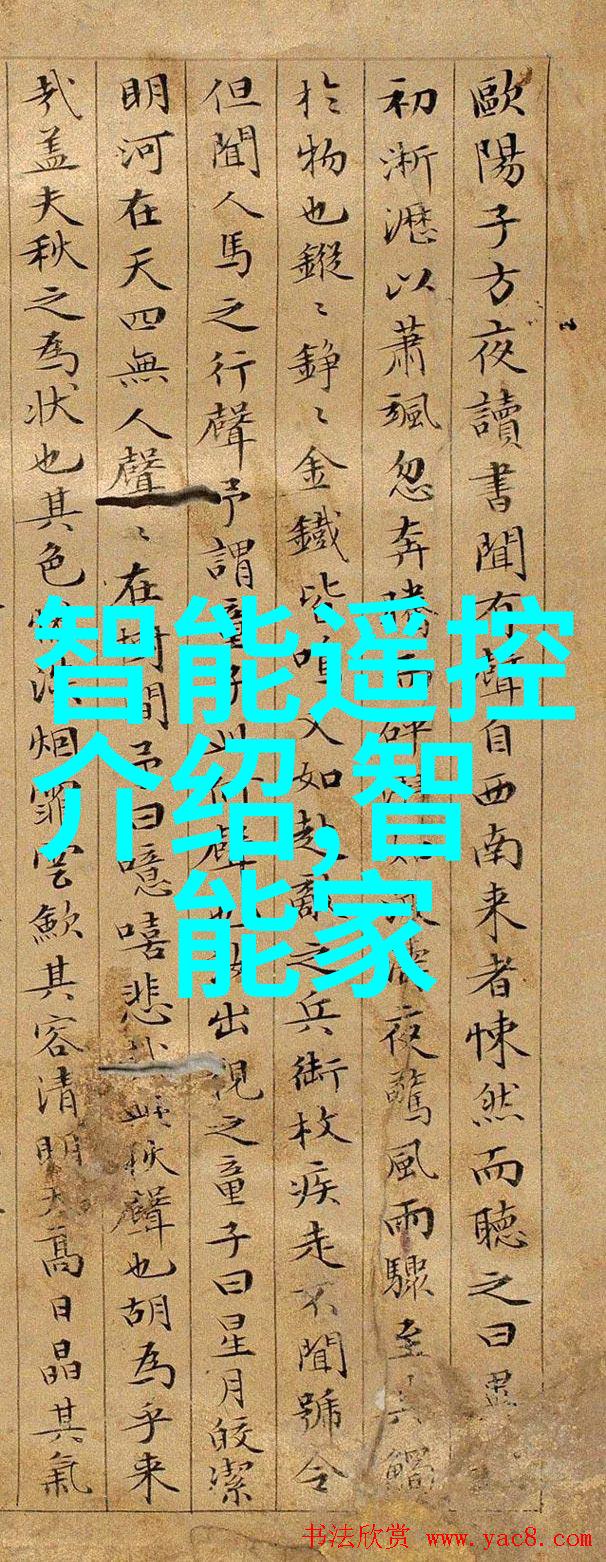 歐陽子方夜讀書聞有聲自西南来者悚然而聽之曰
初淅瀝以蕭颯忽奔騰而砰夜驚風雨驟至其觸
扵物也鏦〻錚〻金鐵皆鳴又如赴敵之兵銜枚疾走不聞號令
但聞人馬之行聲予謂童子此何聲也汝出視之童子曰星月皎潔
明河在天四無人聲〻在樹間予曰噫嘻悲哉秋聲也胡為乎来
哉盖夫秋之為状也其色慘淡烟霏雲歛其容清明天高日晶其氣
智能遥控
介绍,智
能家
书法欣赏 www.yac8.com